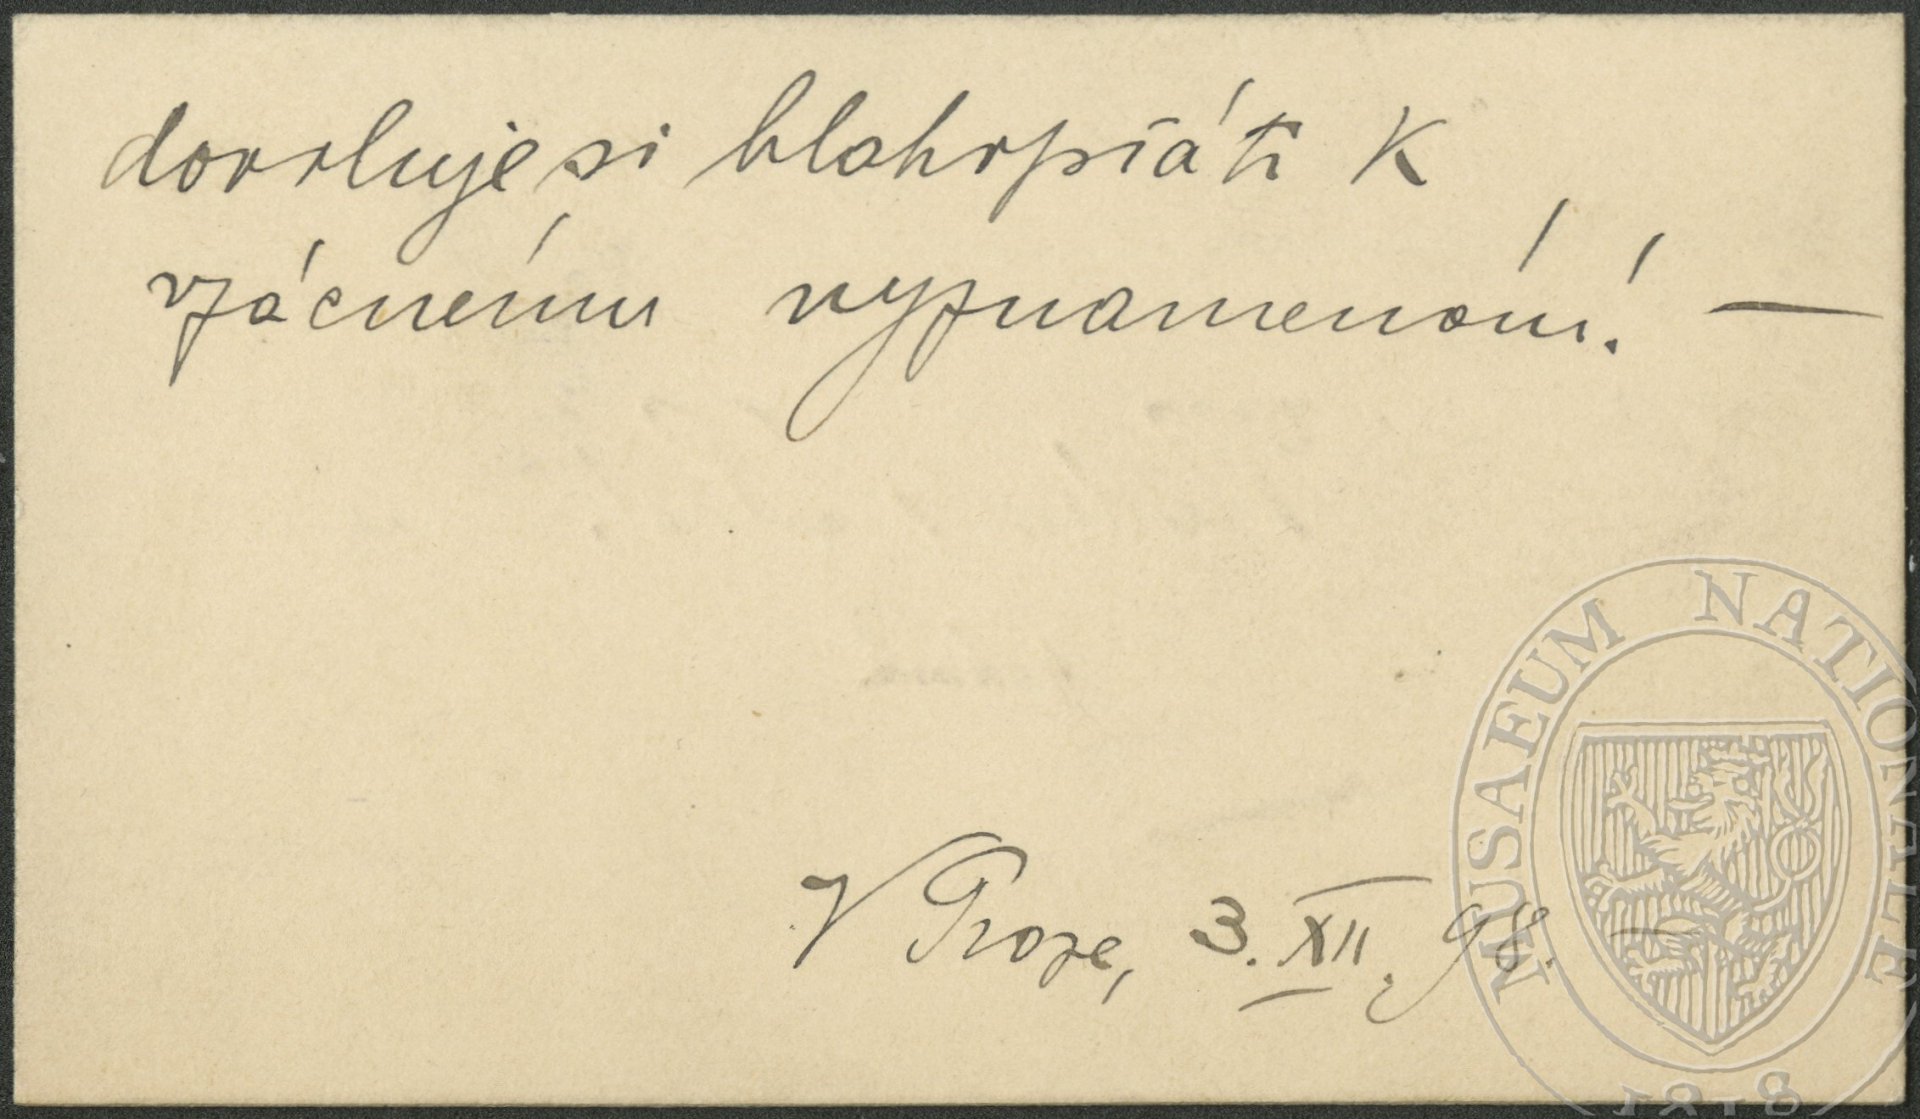 dovoluje si blahopřáti k
vzácnému vyznamenání! —
V Praze, 3. XII. 98.
MUSAEUM NATIONALE
1818